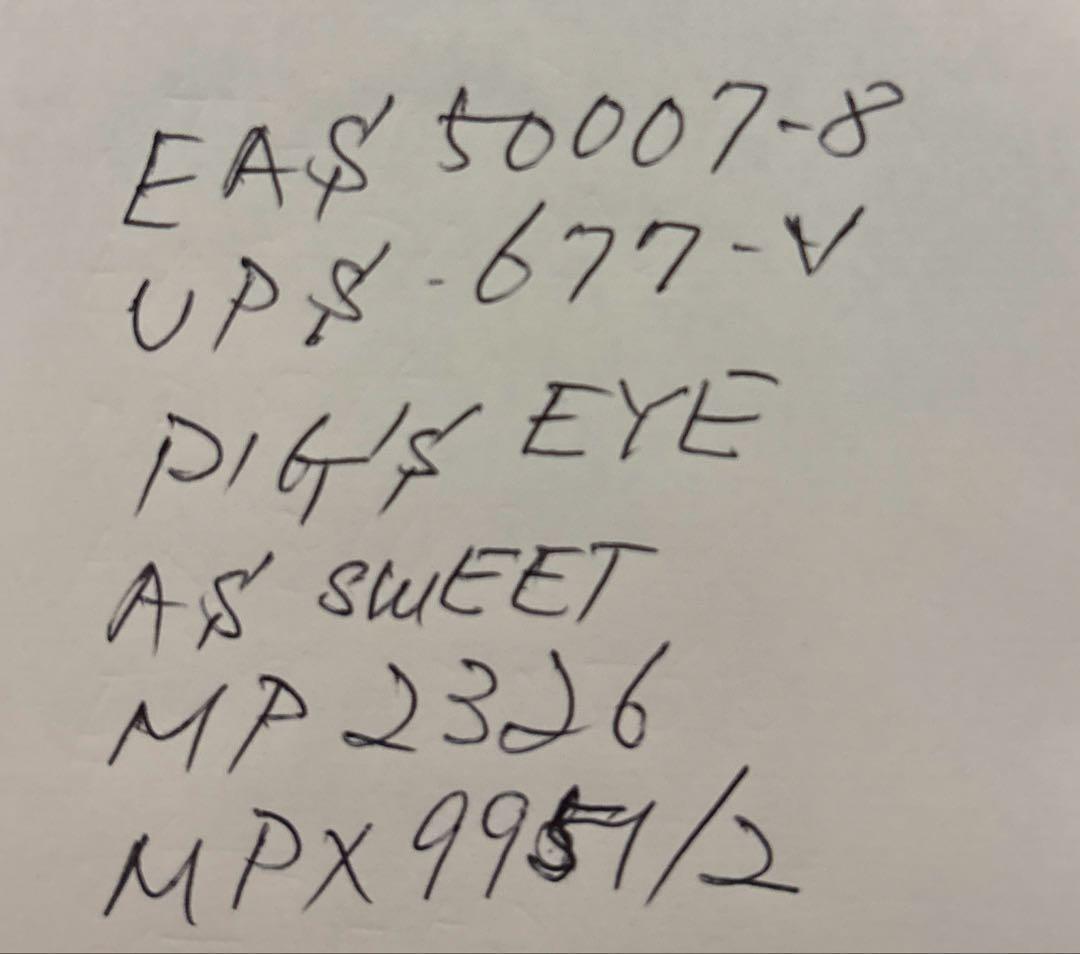 EAS 50007-8
UPS-677-V
PIG'S EYE
AS SWEET
MP 2326
MPX 9951/2